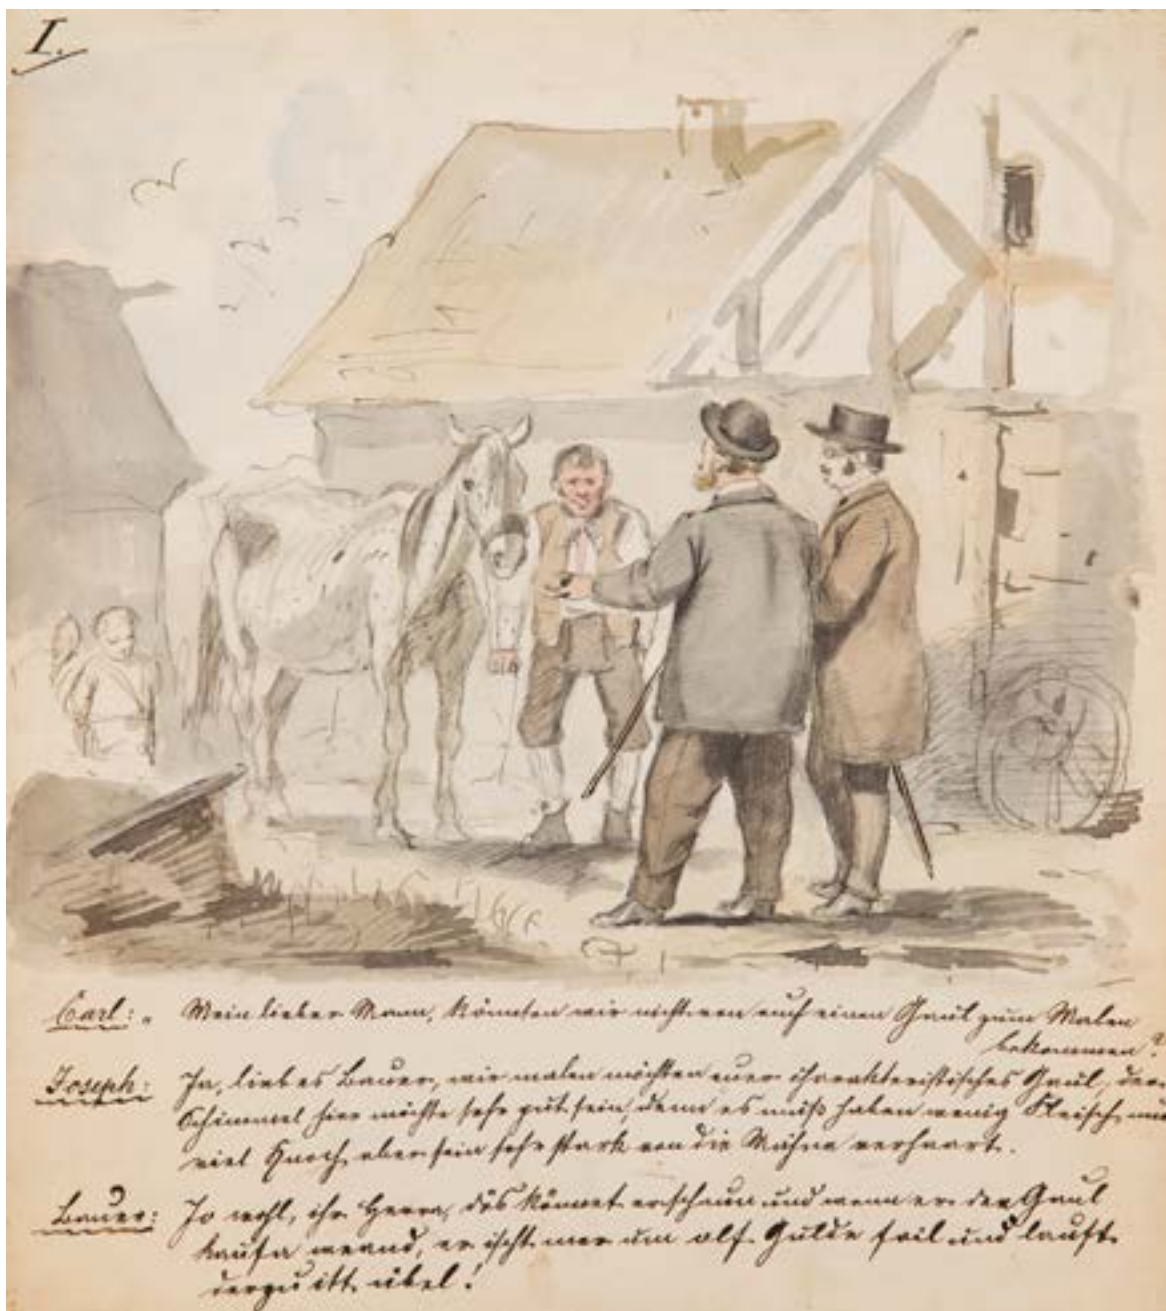 I.
Carl: „ Mein lieber Mann, könnten wir nicht von euch einen Gaul zum Malen
bekommen?
Joseph: Ja, liebes Bauer, wir malen möchten euer charakteristisches Gaul, der
Schimmel hier möchte sehr gut sein, denn es muß haben wenig Fleisch und
viel Knoch, aber sein sehr stark von die Mähne verhaart.
Bauer: Jo wohl, ihr Herra, dös könnet er schaun und wenn er den Gaul
kaufa weand, er ischt mer um olf Gulde fail und lauft
derzu itt übel!